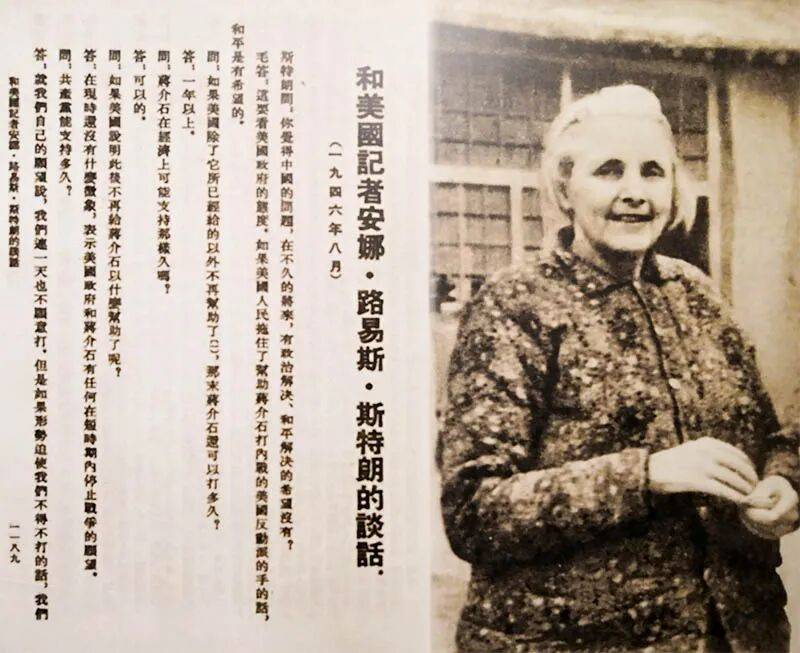 和美國記者安娜·路易斯·斯特朗的談話
（一九四六年八月）
斯特朗問：你覺得中國的問題，在不久的將來，有政治解決、和平解決的希望沒有？
毛答：這要看美國政府的態度。如果美國人民拖住了幫助蔣介石打內戰的美國反動派的手的話，
和平是有希望的。
問：如果美國除了它所已經給的以外不再幫助了〔一〕，那末蔣介石還可以打多久？
答：一年以上。
問：蔣介石在經濟上可能支持那樣久嗎？
答：可以的。
問：如果美國說明此後不再給蔣介石以什麼幫助了呢？
答：在現時還沒有什麼徵象，表示美國政府和蔣介石有任何在短時期內停止戰爭的願望。
問：共產黨能支持多久？
答：就我們自己的願望說，我們連一天也不願意打。但是如果形勢迫使我們不得不打的話，我們
和美國記者安娜·路易斯·斯特朗的談話
一一八九